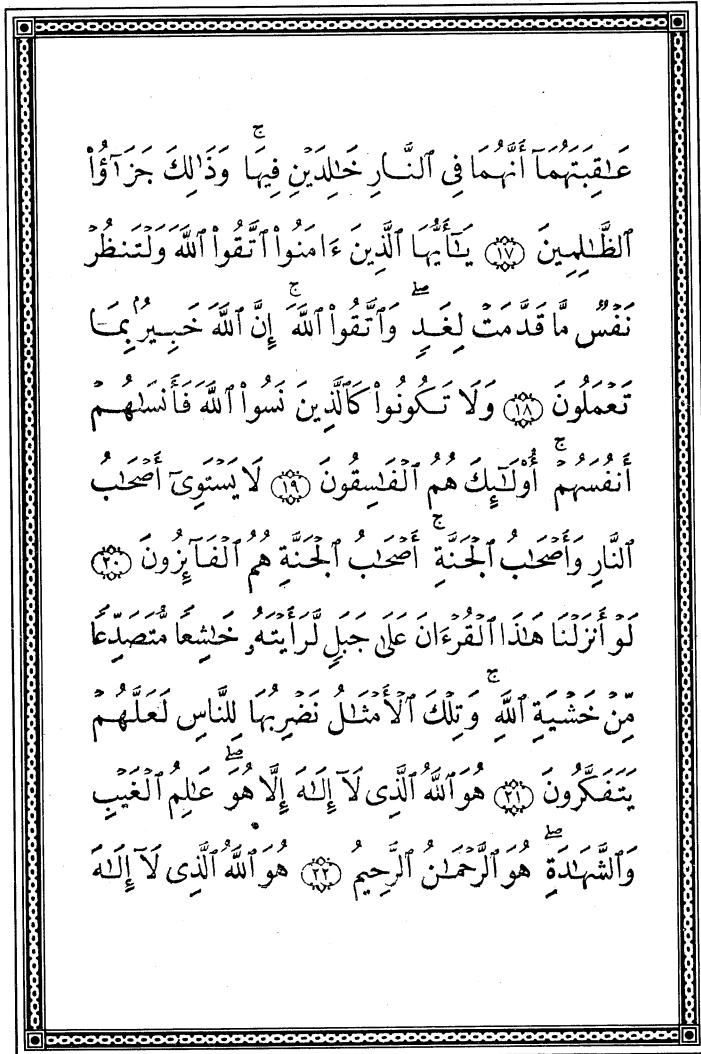 عَـٰقِبَتَهُمَآ أَنَّهُمَا فِى ٱلنَّارِ خَـٰلِدَيْنِ فِيهَا ۚ وَذَٰلِكَ جَزَـٰٓؤُا۟
ٱلظَّـٰلِمِينَ ۝١٧ يَـٰٓأَيُّهَا ٱلَّذِينَ ءَامَنُوا۟ ٱتَّقُوا۟ ٱللَّهَ وَلْتَنظُرْ
نَفْسٌ مَّا قَدَّمَتْ لِغَدٍ ۖ وَٱتَّقُوا۟ ٱللَّهَ ۚ إِنَّ ٱللَّهَ خَبِيرٌۢ بِمَا
تَعْمَلُونَ ۝١٨ وَلَا تَكُونُوا۟ كَٱلَّذِينَ نَسُوا۟ ٱللَّهَ فَأَنسَىٰهُمْ
أَنفُسَهُمْ ۚ أُو۟لَـٰٓئِكَ هُمُ ٱلْفَـٰسِقُونَ ۝١٩ لَا يَسْتَوِىٓ أَصْحَـٰبُ
ٱلنَّارِ وَأَصْحَـٰبُ ٱلْجَنَّةِ ۚ أَصْحَـٰبُ ٱلْجَنَّةِ هُمُ ٱلْفَآئِزُونَ ۝٢٠
لَوْ أَنزَلْنَا هَـٰذَا ٱلْقُرْءَانَ عَلَىٰ جَبَلٍ لَّرَأَيْتَهُۥ خَـٰشِعًا مُّتَصَدِّعًا
مِّنْ خَشْيَةِ ٱللَّهِ ۚ وَتِلْكَ ٱلْأَمْثَـٰلُ نَضْرِبُهَا لِلنَّاسِ لَعَلَّهُمْ
يَتَفَكَّرُونَ ۝٢١ هُوَ ٱللَّهُ ٱلَّذِى لَآ إِلَـٰهَ إِلَّا هُوَ ۖ عَـٰلِمُ ٱلْغَيْبِ
وَٱلشَّهَـٰدَةِ ۖ هُوَ ٱلرَّحْمَـٰنُ ٱلرَّحِيمُ ۝٢٢ هُوَ ٱللَّهُ ٱلَّذِى لَآ إِلَـٰهَ